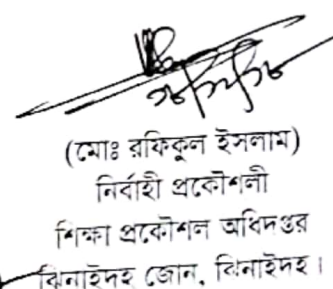 (মোঃ রফিকুল ইসলাম)
নির্বাহী প্রকৌশলী
শিক্ষা প্রকৌশল অধিদপ্তর
ঝিনাইদহ জোন, ঝিনাইদহ।